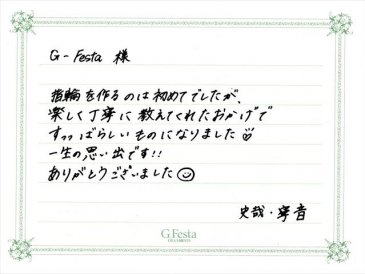 G-Festa 様
指輪を作るのは初めてでしたが、
楽しく丁寧に教えてくれたおかげで
すっっばらしいものになりました♡
一生の思い出です!!
ありがとうございました☺
史哉・寧音
G.Festa